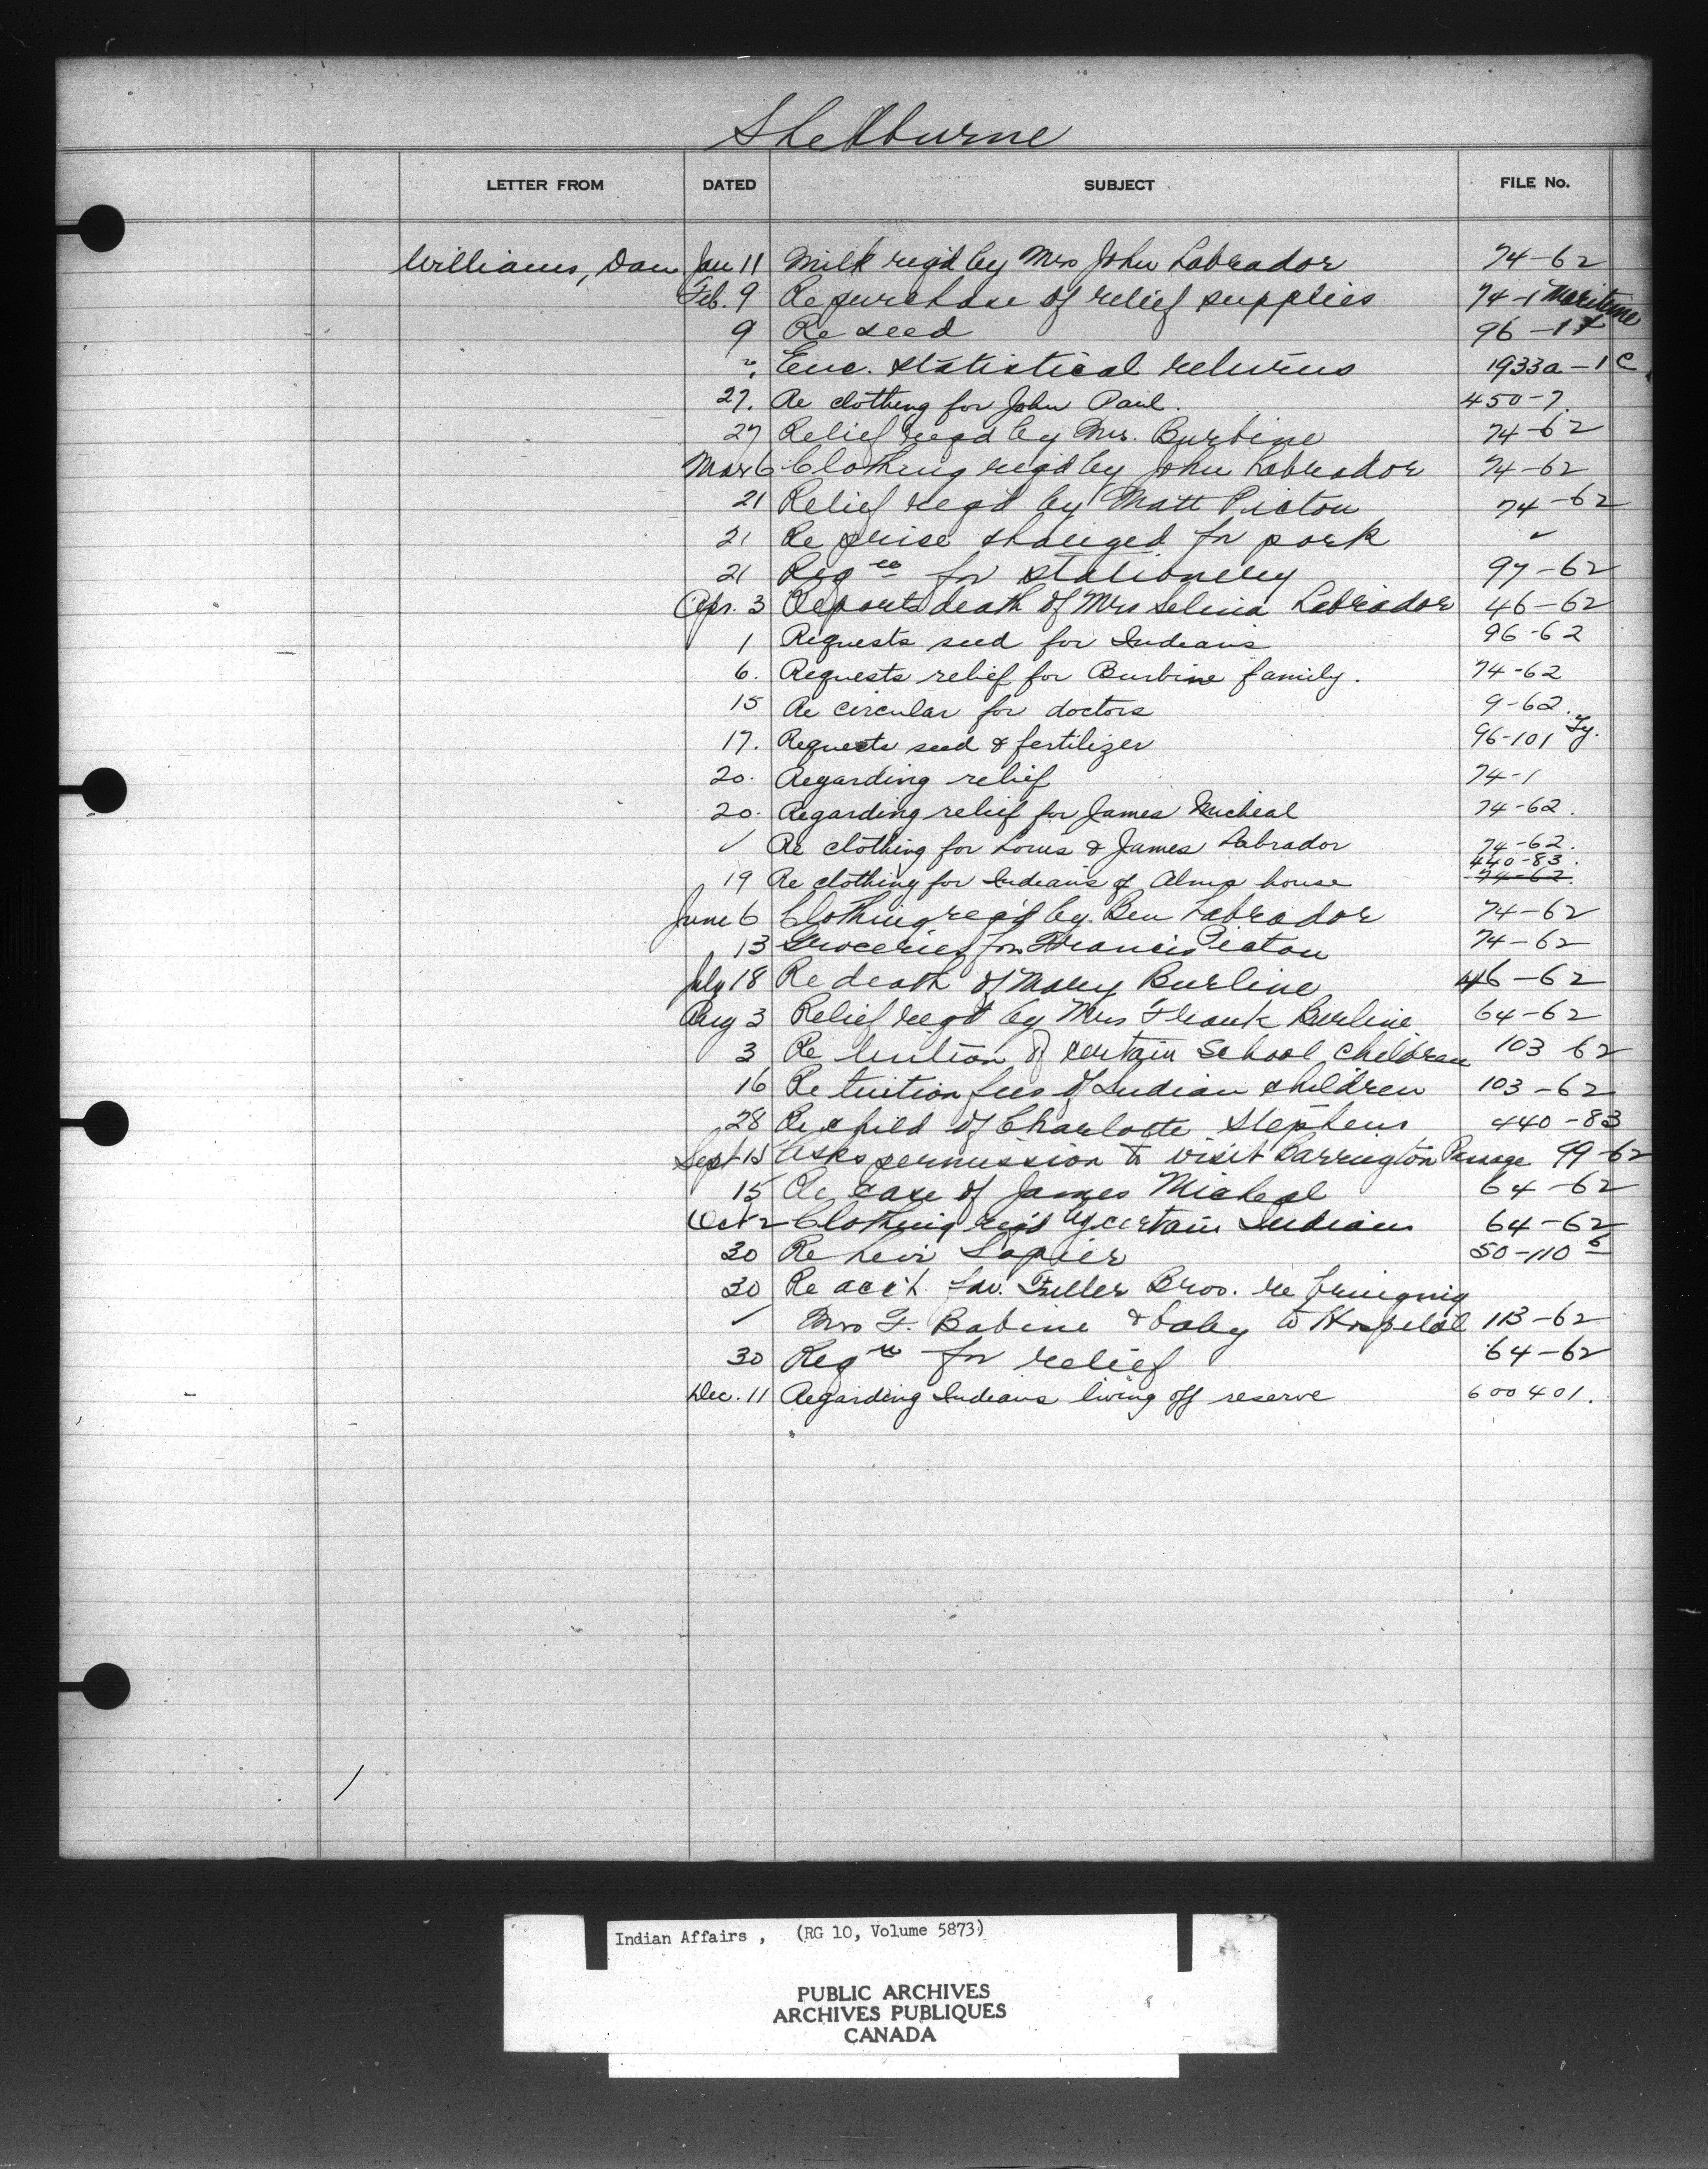 Shelburne
LETTER FROM DATED SUBJECT FILE No.
Williams, Dan Jan 11 Milk reqd by Mrs John Labrador 74-62
Feb. 9 Re purchase of relief supplies 74-1 Maritime
9 Re seed 96-1
" Enc. statistical returns 1933a-1C
27. Re clothing for John Paul. 450-7.
27 Relief reqd by Mr. Burbine 74-62
Mar 6 Clothing reqd by John Labrador 74-62
21 Relief reqd by Matt Picton 74-62
21 Re price charged for pork "
21 Reqn for stationery 97-62
Apr. 3 Reports death of Mrs Selina Labrador 46-62
1 Requests seed for Indians 96-62
6. Requests relief for Burbine family. 74-62
15 Re circular for doctors 9-62.
17. Requests seed & fertilizer 96-101 Ty.
20. Regarding relief 74-1
20. Regarding relief for James Micheal 74-62.
" Re clothing for Louis & James Labrador 74-62.
440-83.
19 Re clothing for Indians of Alms house 74-62.
June 6 Clothing reqd by Ben Labrador 74-62
13 Groceries for Francis Picton 74-62
July 18 Re death of Mary Burline 46-62
Aug 3 Relief reqd by Mrs Frank Burline 64-62
3 Re tuition of certain School children 103-62
16 Re tuition fees of Indian children 103-62
28 Re child of Charlotte Stephens 440-83
Sept 15 Asks permission to visit Barrington Passage 99-62
15 Re case of James Micheal 64-62
Oct 2 Clothing reqd by certain Indians 64-62
30 Re Levi 50-110 6
30 Re acc't fav. Fuller Bros. re bringing
" Mrs F. Babine & baby to Hospital 113-62
30 Reqn for relief 64-62
Dec. 11 Regarding Indians living off reserve 600401.
Indian Affairs, (RG 10, Volume 5873)
PUBLIC ARCHIVES
ARCHIVES PUBLIQUES
CANADA